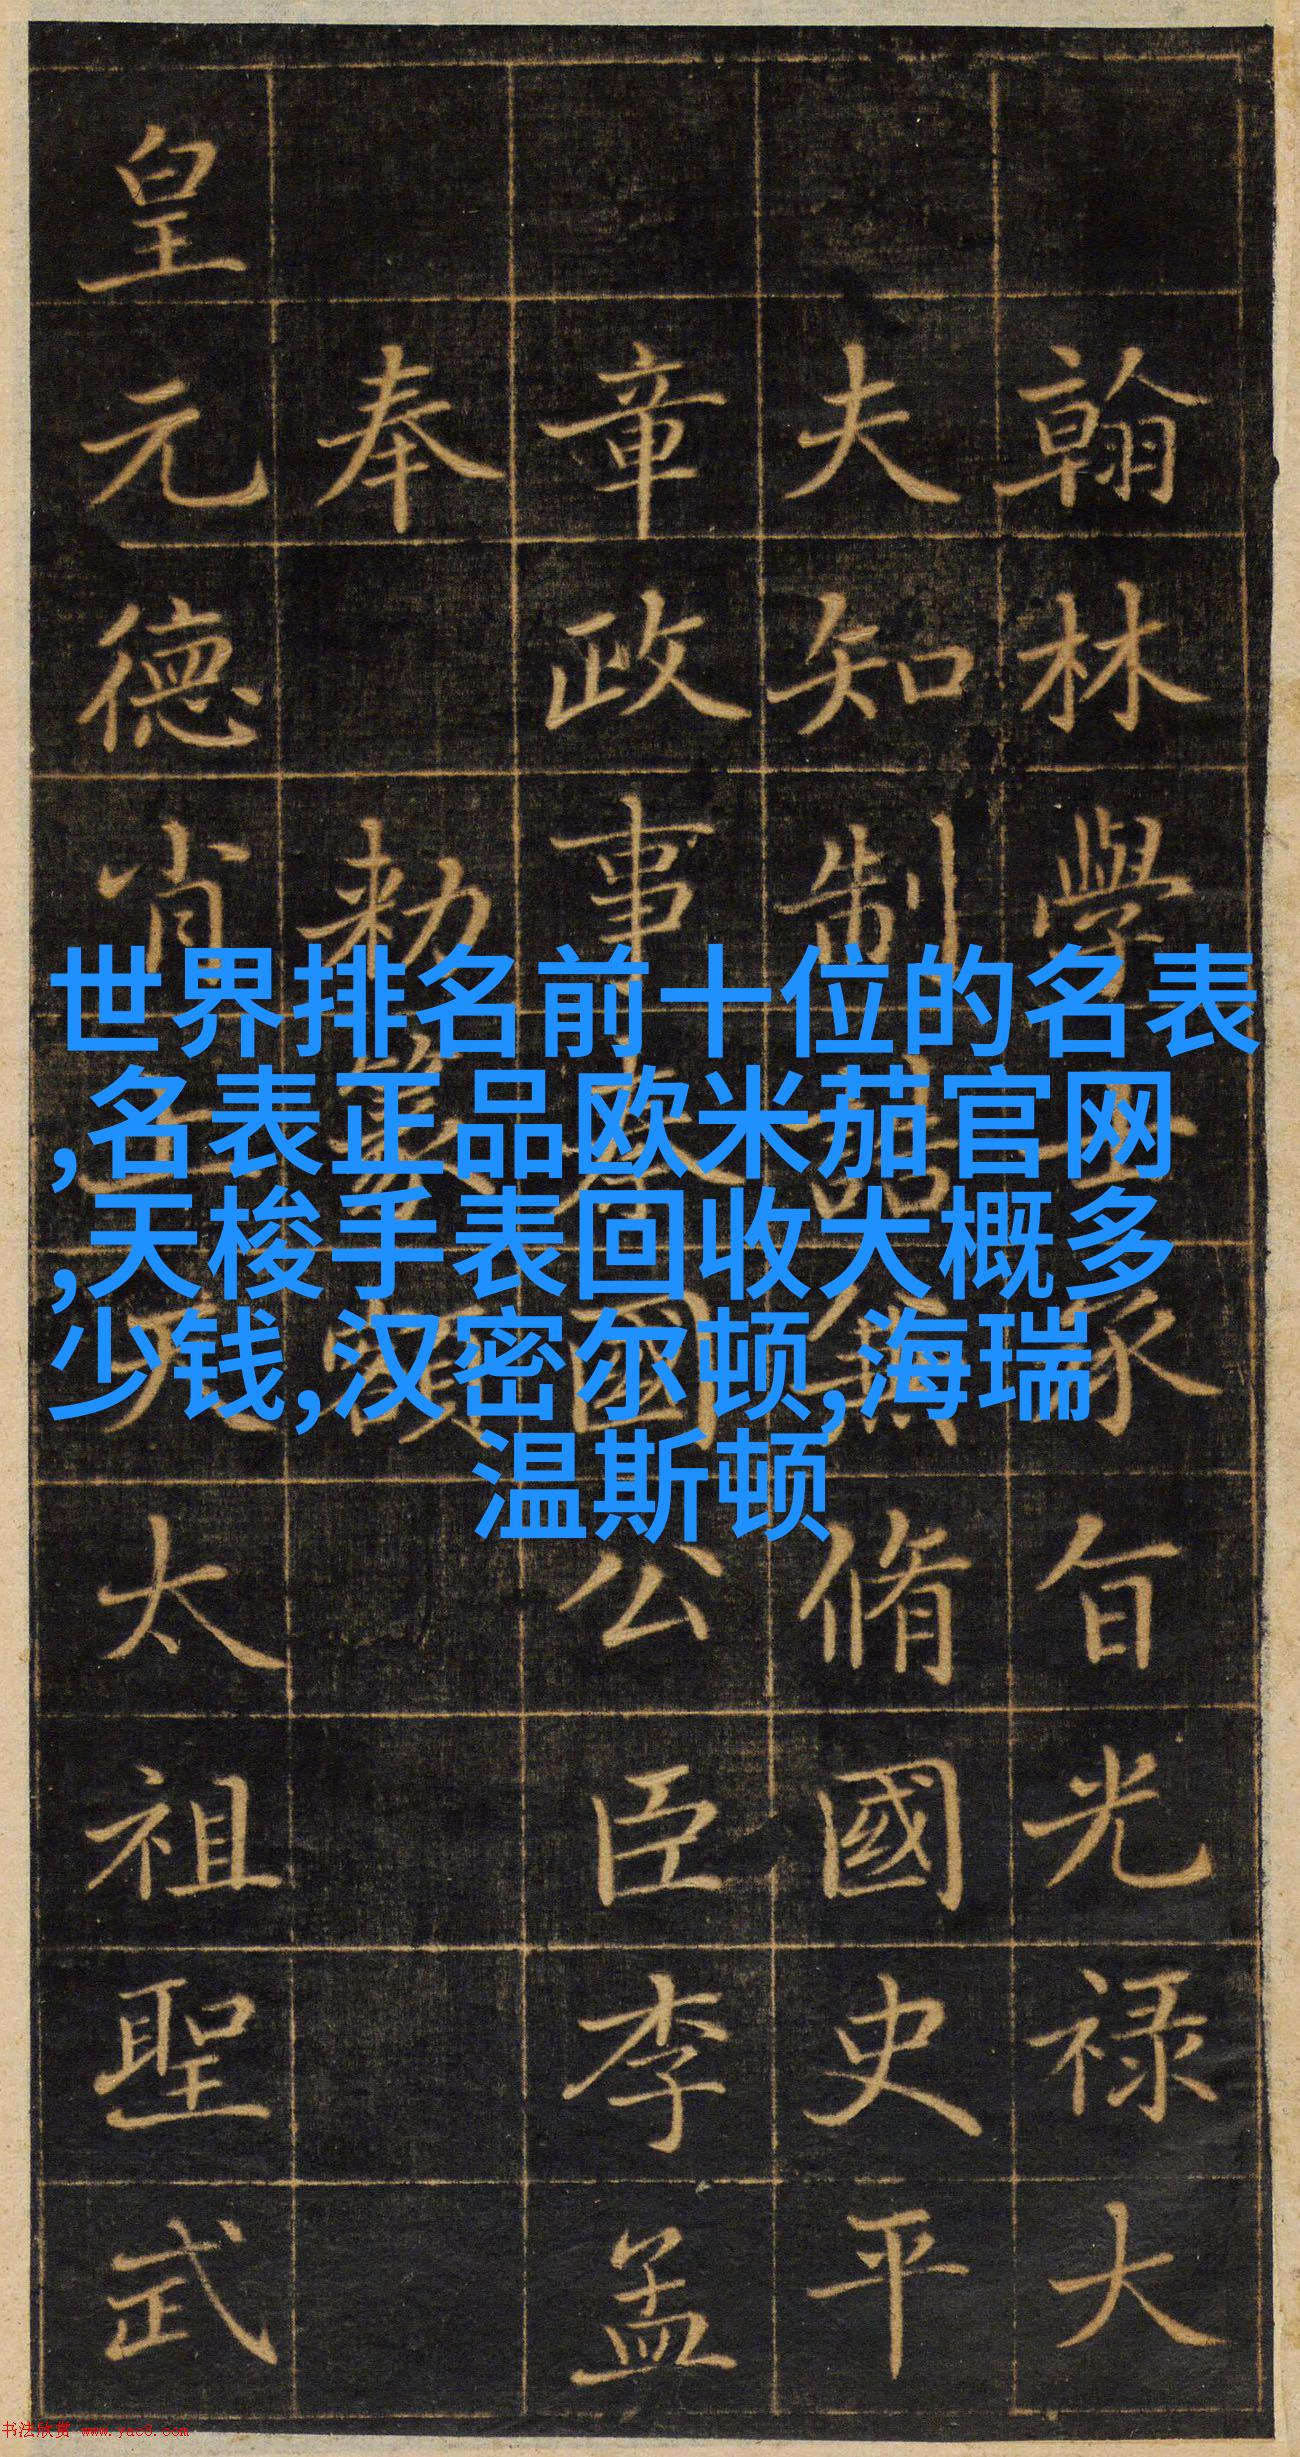 世界排名前十位的名表
,名表正品欧米茄官网
,天梭手表回收大概多
少钱,汉密尔顿,海瑞
温斯顿
翰林學士承旨光祿大
夫知制誥兼脩國史平
章政事秦國公臣李孟
奉勅篆額
皇元德肖上天太祖聖武
书法欣赏 www.yac8.com